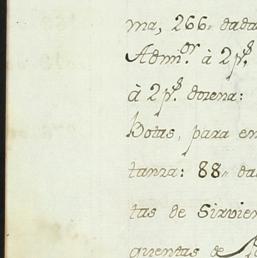 ma, 266. dada
Adm.or à 2 p.s
à 2 p.s dozena:
Botas, para en
tanza: 88.. da
tas de Sirvien
quentas de